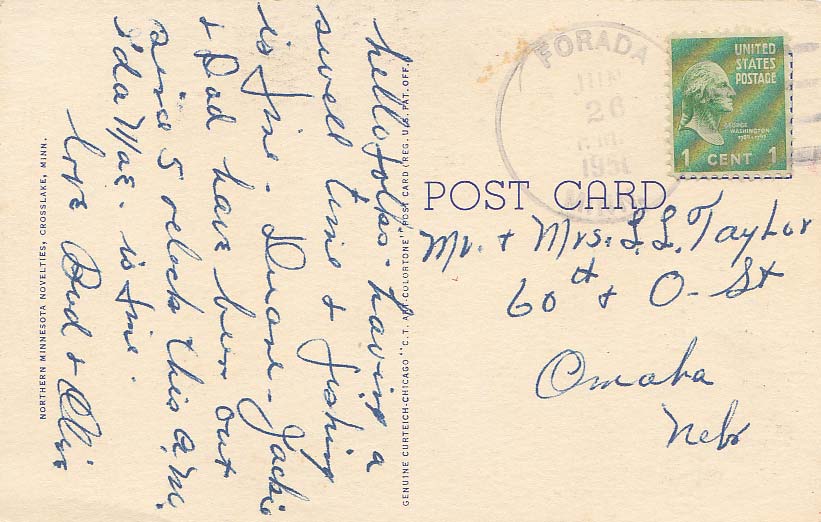 hello folks - having a
swell time & fishing
is fine - Duane - Jackie
& Dad have been out
since 5 oclock this a.m.
Ida Mae - is fine.
love Bud & Olive
NORTHERN MINNESOTA NOVELTIES, CROSSLAKE, MINN.
GENUINE CURTEICH-CHICAGO "C.T. ART-COLORTONE" POST CARD (REG. U.S. PAT. OFF.)
FORADA
JUN
26
1950
MINN.
UNITED
STATES
POSTAGE
GEORGE
WASHINGTON
1789-1797
1 CENT 1
POST CARD
Mr. & Mrs. L.L. Taylor
60th & O - St
Omaha
Nebr